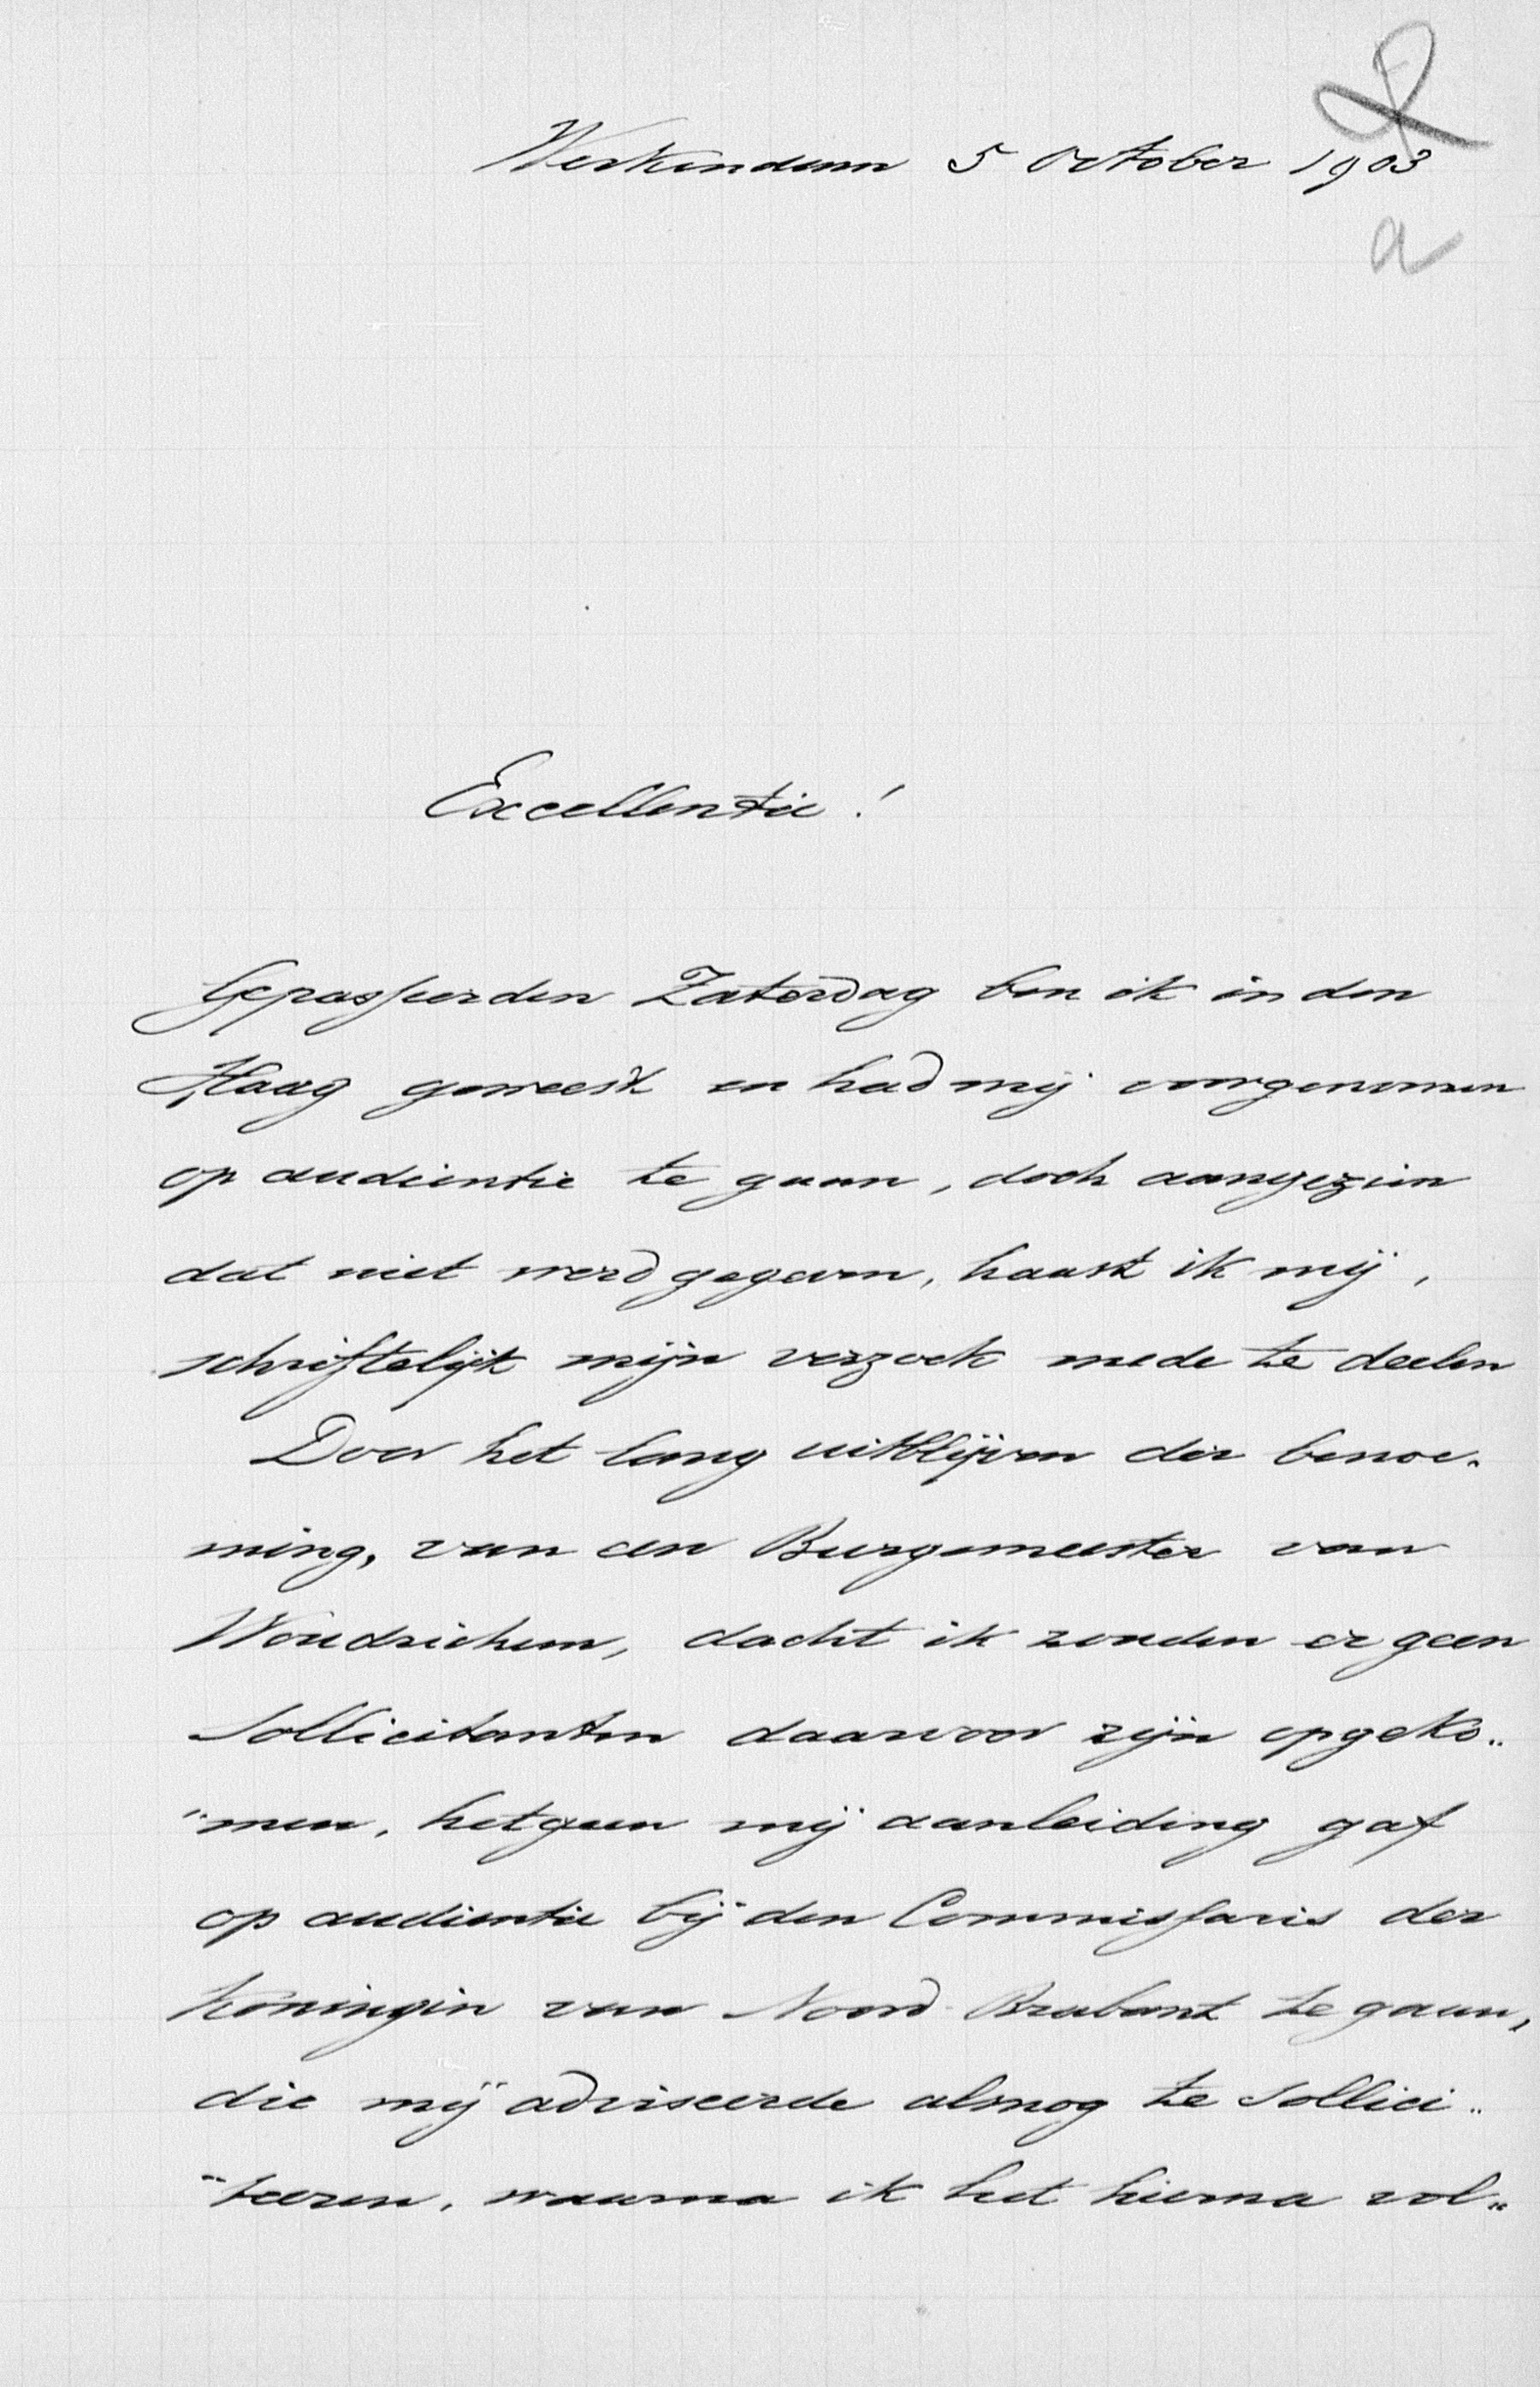 Werkendam 5 October 1903
a
Excellentie!
Gepasseerden Zaterdag ben ik in den
Haag geweest en had mij voorgenomen
op audientie te gaan, doch aangezien
dat niet werd gegeven, haast ik mij,
schriftelijk mijn verzoek mede te deelen
Door het lang uitblijven der benoe-
ming, van een Burgemeester van
Woudrichem, dacht ik zouden er geen
Sollicitanten daarvoor zijn opgeko„
„men, hetgeen mij aanleiding gaf
op audientie bij den Commissaris der
Koningin van Noord-Brabant te gaan,
die mij adviseerde alsnog te Sollici„
„teeren, waarna ik het hierna vol„